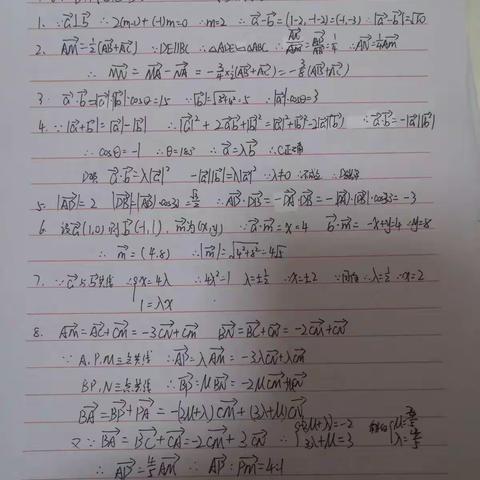 1. ∵a⃗⊥b⃗ ∴2(m-1)+(-1)m=0 ∴m=2 ∴a⃗-b⃗=(1-2,-1-2)=(-1,-3) ∴|a⃗-b⃗|=√10
2. AM⃗=½(AB⃗+AC⃗) ∵DE∥BC ∴△ADE∽△ABC ∴AN⃗=¼AM⃗
∴MN⃗=MA⃗-NA⃗=-¾×½(AB⃗+AC⃗)=-⅜(AB⃗+AC⃗)
3. a⃗·b⃗=|a⃗||b⃗|·cosθ=15 ∵|b⃗|=√(3²+4²)=5 ∴|a⃗|·cosθ=3
4. ∵|a⃗+b⃗|=|a⃗|-|b⃗| ∴|a⃗|²+2a⃗b⃗+|b⃗|²=|a⃗|²+|b⃗|²-2|a⃗||b⃗| ∴a⃗·b⃗=-|a⃗||b⃗|
∴cosθ=-1 ∴θ=180° ∴a⃗=λb⃗ ∴C正确
a⃗·b⃗=λ|a⃗|² -|a⃗||b⃗|=λ|a⃗|²
5. |AB⃗|=2 ∴AD⃗·DB⃗=-DA⃗·DB⃗=-|DA⃗|·|DB⃗|·cos30=-3
6. 设a⃗(1,0) b⃗(-1,1), m⃗为(x,y) ∵a⃗·m⃗=x=4 b⃗·m⃗=-x+y=4 ∴y=8
∴m⃗=(4,8) ∴|m⃗|=√(4²+8²)=4√5
7. ∵a⃗与b⃗共线 ∴{x=4λ ∴4λ²=1 λ=±½ ∴x=±2 ∵同向 ∴λ=½ ∴x=2
1=λx
8. AM⃗=AC⃗+CM⃗=-3CN⃗+CM⃗ BN⃗=BC⃗+CN⃗=-2CM⃗+CN⃗
∵A,P,M三点共线 ∴AP⃗=λAM⃗=-3λCN⃗+λCM⃗
B,P,N三点共线 ∴BP⃗=μBN⃗=-2μCM⃗+μCN⃗
BA⃗=BP⃗+PA⃗=-(2μ+λ)CM⃗+(3λ+μ)CN⃗
又∵BA⃗=BC⃗+CA⃗=-2CM⃗+3CN⃗ ∴{-(2μ+λ)=-2 解得{μ=3/5
3λ+μ=3 λ=4/5
∴AP⃗=4/5AM⃗ ∴AP⃗:PM⃗=4:1